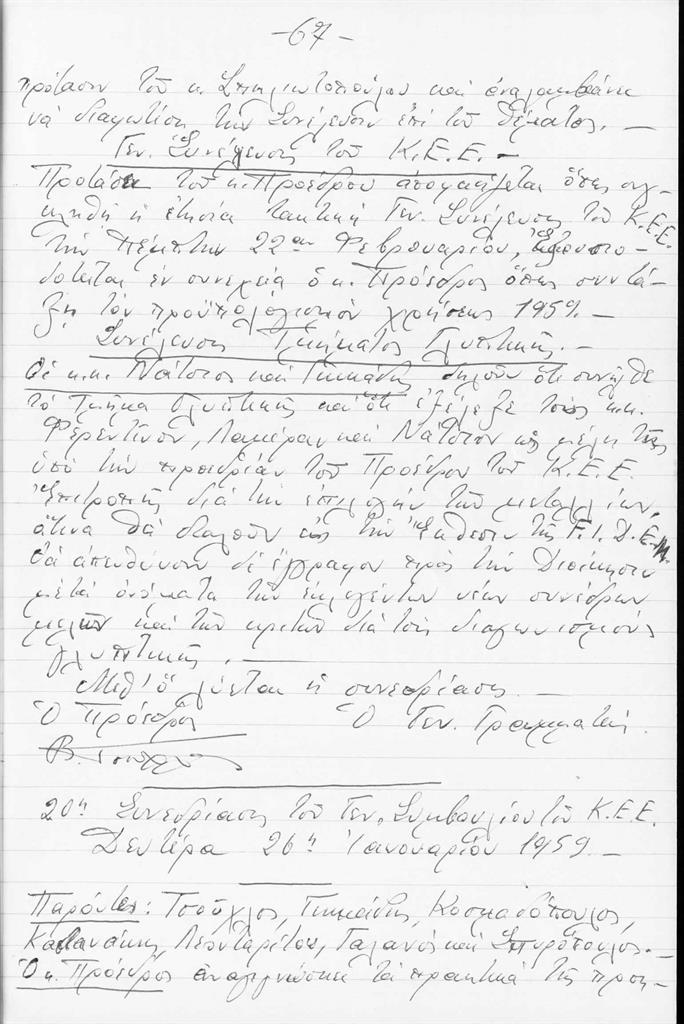 -67-
πρότασιν τοῦ κ. Σπηλιωτοπούλου καί ἀναλαμβάνει
νά διαφωτίσῃ τήν Συνέλευσιν ἐπί τοῦ θέματος. —
Γεν. Συνέλευσις τοῦ Κ.Ε.Ε. —
Προτάσει τοῦ κ. Προέδρου ἀποφασίζεται ὅπως συγ-
κληθῇ ἡ ἐτησία τακτική Γεν. Συνέλευσις τοῦ Κ.Ε.Ε.
τήν Πέμπτην 22αν Φεβρουαρίου, ἐξουσιο-
δοτεῖται ἐν συνεχείᾳ ὁ κ. Πρόεδρος ὅπως συντά-
ξῃ τόν προϋπολογισμόν χρήσεως 1959. —
Συνέλευσις Τμήματος Γλυπτικῆς. —
Οἱ κ.κ. Νάτσιος καί Γικμάδης δηλοῦν ὅτι συνῆλθε
τό Τμῆμα Γλυπτικῆς καί ὅτι ἐξέλεξε τούς κ.κ.
Φερεντῖνον, Λαμέραν καί Νάτσιον ὡς μέλη τῆς
ὑπό τήν προεδρίαν τοῦ Προέδρου τοῦ Κ.Ε.Ε.
Ἐπιτροπῆς διά τήν ἐπιλογήν τῶν μεταλλίων,
ἅτινα θά σταλοῦν εἰς τήν Ἔκθεσιν τῆς F.I.D.E.M.
Θά ἀπευθύνουν δέ ἔγγραφον πρός τήν Διοίκησιν
μετά ὀνόματα τῶν ἐκλεγέντων νέων συνέδρων
μελῶν καί τῶν κριτῶν διά τούς διαγωνισμούς
γλυπτικῆς. —
Μεθ' ὅ λύεται ἡ συνεδρίασις. —
Ὁ Πρόεδρος Ὁ Γεν. Γραμματεύς
20η Συνεδρίασις τοῦ Γεν. Συμβουλίου τοῦ Κ.Ε.Ε.
Δευτέρα 26η Ἰανουαρίου 1959 —
Παρόντες: Τσοῦχλος, Γικμάδης, Κοσμαδόπουλος,
Καστανάκης, Λεονταρίτου, Γαλανός καί Σπυρόπουλος. —
Ὁ κ. Πρόεδρος ἀναγιγνώσκει τά πρακτικά τῆς προη-